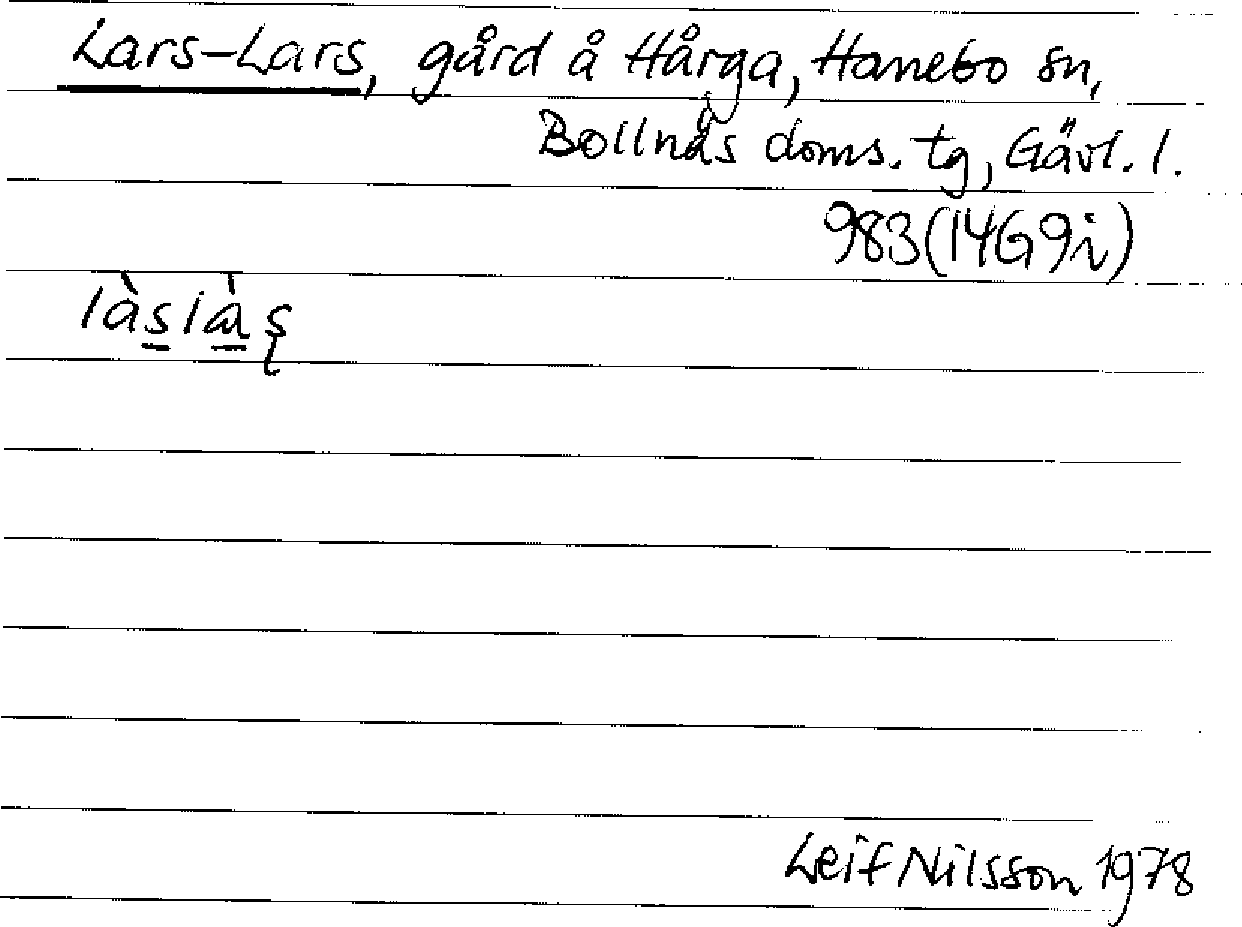 Lars-Lars, gård å Hårga, Hanebo sn,
Bollnäs doms. tg, Gävl. l.
983 (14G9i)
Leif Nilsson 1978